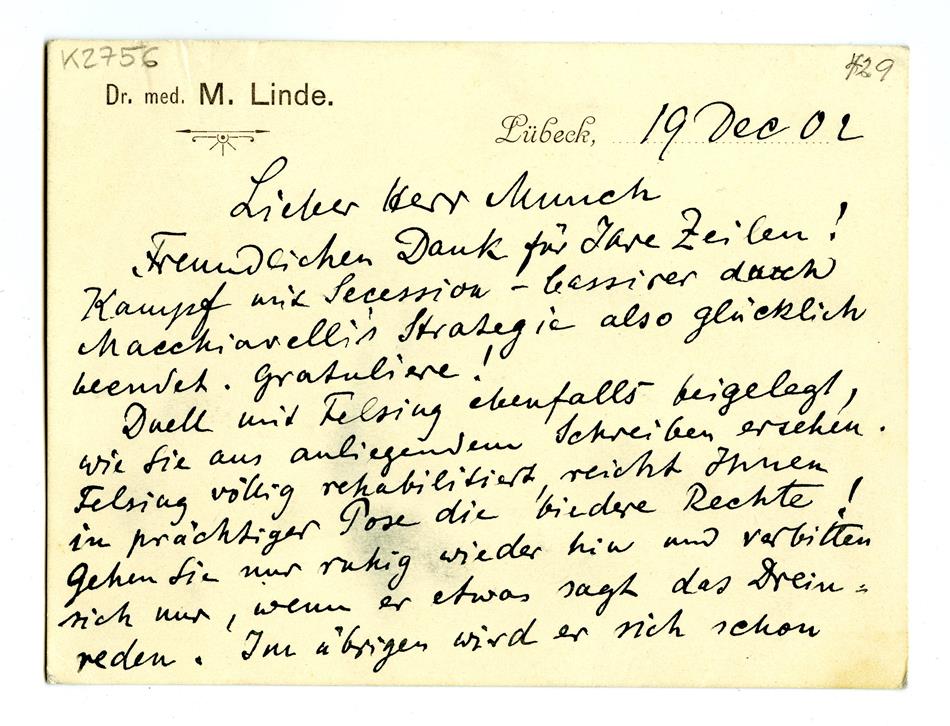 K2756
429
Dr. med. M. Linde.
Lübeck, 19 Dec 02
Lieber Herr Munch
Freundlichen Dank für Ihre Zeilen!
Kampf mit Secession - Cassirer durch
Macchiavelli's Strategie also glücklich
beendet. Gratuliere!
Duell mit Felsing ebenfalls beigelegt,
wie Sie aus anliegendem Schreiben ersehen.
Felsing völlig rehabilitiert, reicht Ihnen
in prächtiger Pose die biedere Rechte!
Gehen Sie nur ruhig wieder hin und verbitten
sich nur, wenn er etwas sagt das Drein=
reden. Im übrigen wird er sich schon